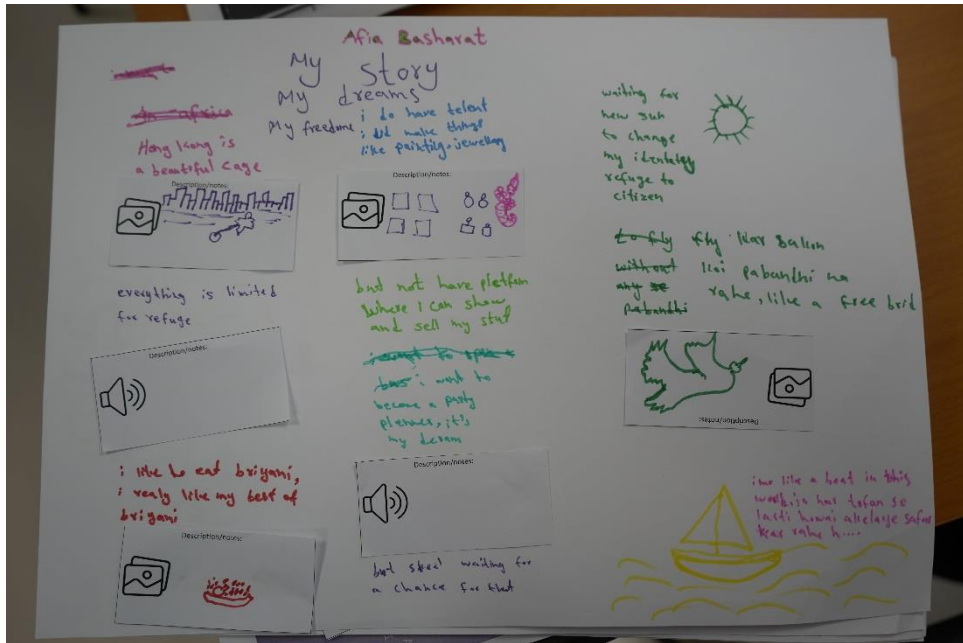 Afia Basharat
My story
My dreams
My freedome
in africa
Hong Kong is
a beautiful cage
Description/notes:
everything is limited
for refuge
Description/notes:
i like to eat briyani,
i realy like my test of
briyani
Description/notes:
i do have telent
i did make things
like painting, jewellery
Description/notes:
but not have pletform
where i can show
and sell my stuf
i want to
become a party
planner, it's
my deram
Description/notes:
but steel waiting for
a chance for that
waiting for
new sun
to change
my identety
refuge to
citizen
to fly fly kar sakon
without koi pabandhi na
any rahe, like a free brid
pabandhi
Description/notes:
ime like a boat in this
har tofan se
larti howai safar
kar rahe h....